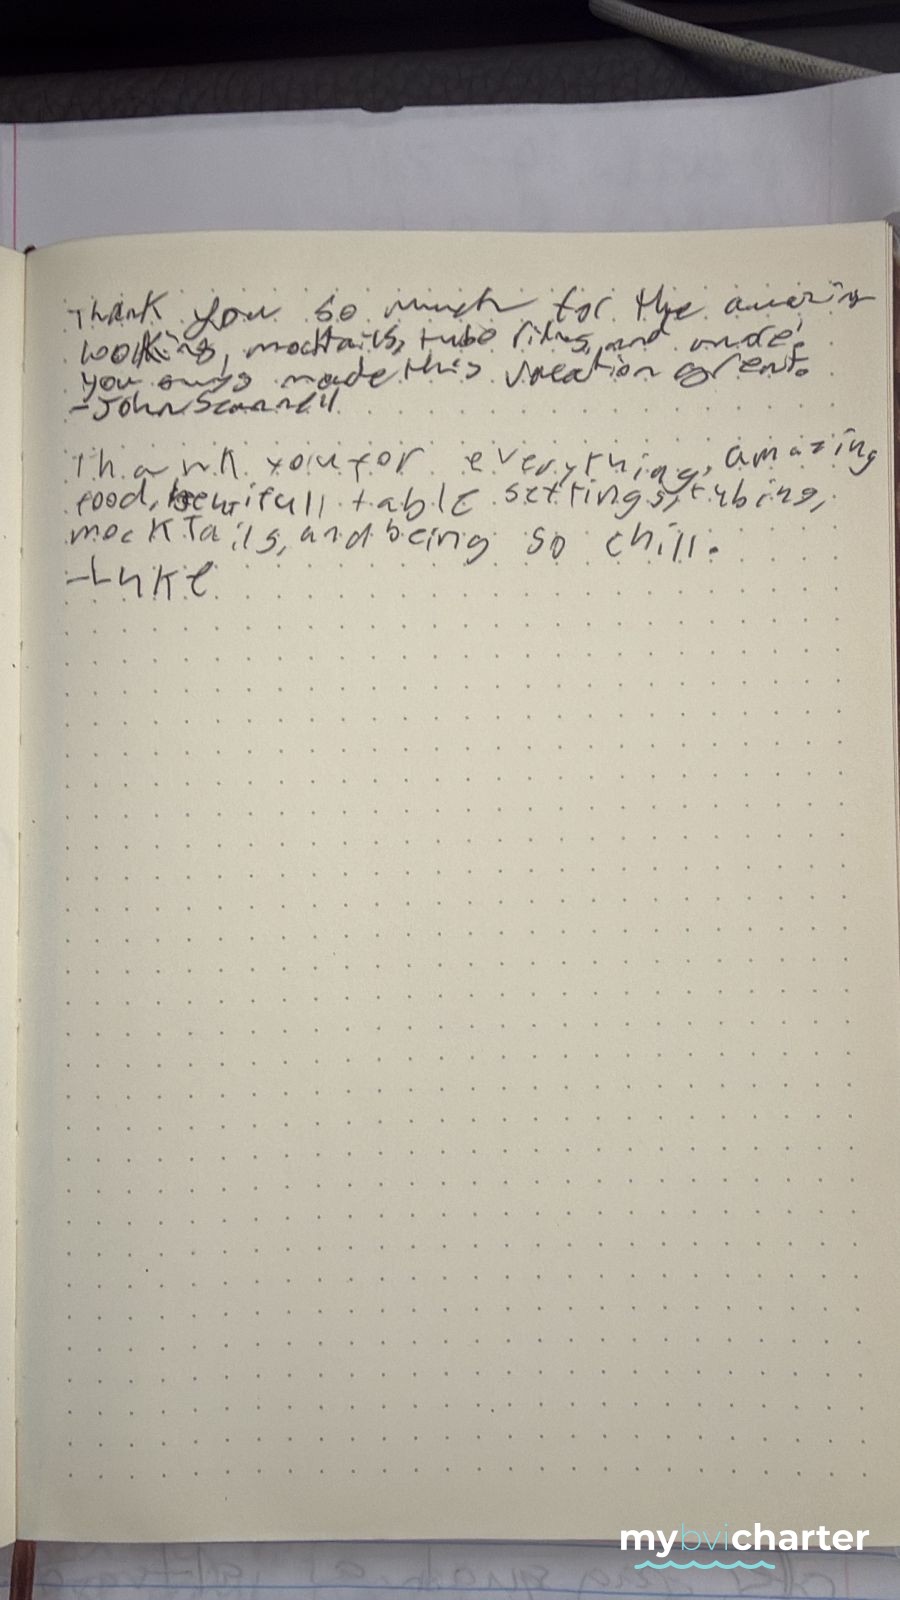 Thank you so much for the amazing
cooking, mocktails, tube rides, and
you guys made this vacation great.
-John Scannell
Thank you for everything, amazing
food, beutifull table settings, tubing,
mocktails, and being so chill.
-Luke
mybvicharter